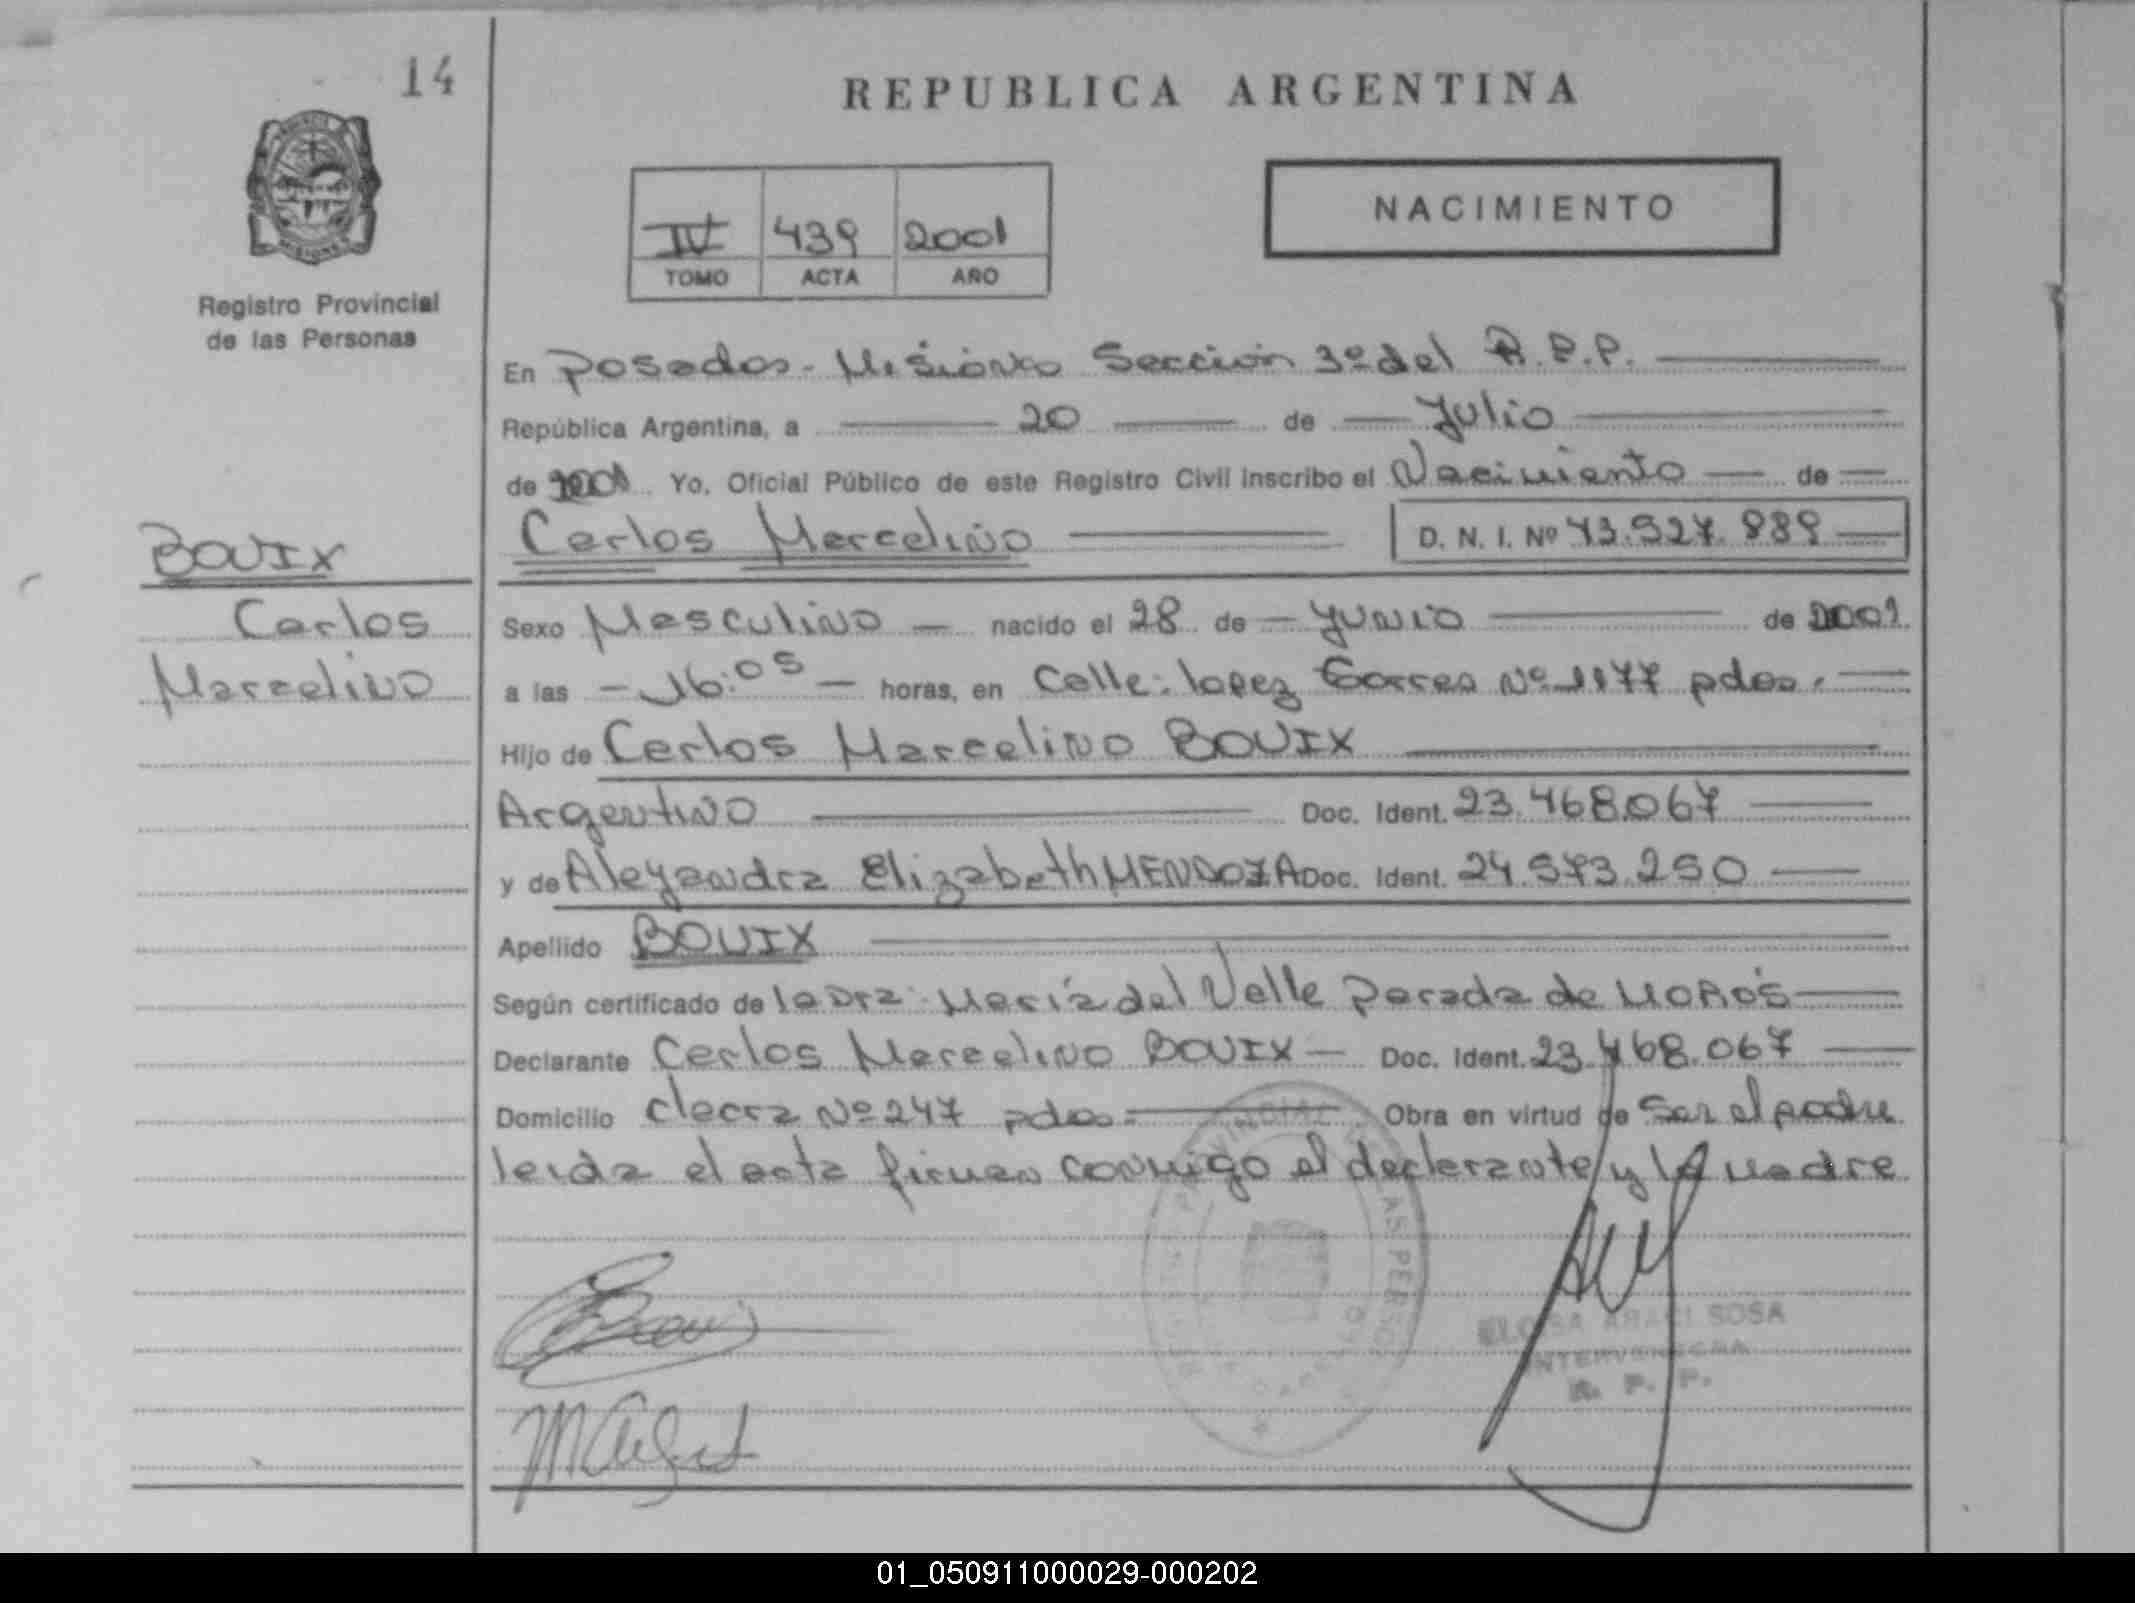 14
REPUBLICA ARGENTINA
MISIONES
Registro Provincial
de las Personas
IV 439 2001
TOMO ACTA AÑO
NACIMIENTO
En Posadas - Misiones Sección 3º del R.P.P.
República Argentina, a 20 de Julio
de 2001 Yo, Oficial Público de este Registro Civil inscribo el Nacimiento de
BOVIX
Carlos Marcelino D. N. I. Nº 43.527.889
Carlos
Marcelino
Sexo Masculino nacido el 28 de Junio de 2001
a las 16:05 horas, en Calle: Lopez Torres Nº 1177 pdas.
Hijo de Carlos Marcelino BOVIX
Argentino Doc. Ident. 23.468.067
y de Aleyandra Elizabeth MENDOZA Doc. Ident. 24.573.250
Apellido BOVIX
Según certificado de la Dra: María del Valle Parada de MOROS
Declarante Carlos Marcelino BOVIX Doc. Ident. 23.468.067
Domicilio chacra Nº 247 pdas. Obra en virtud de ser el padre
leida el acta firman conmigo el declarante y la madre
ELOISA ARACI SOSA
R. P. P.
01_050911000029-000202